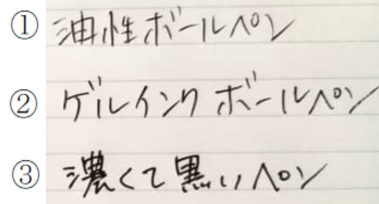 ① 油性ボールペン
② ゲルインクボールペン
③ 濃くて黒いペン